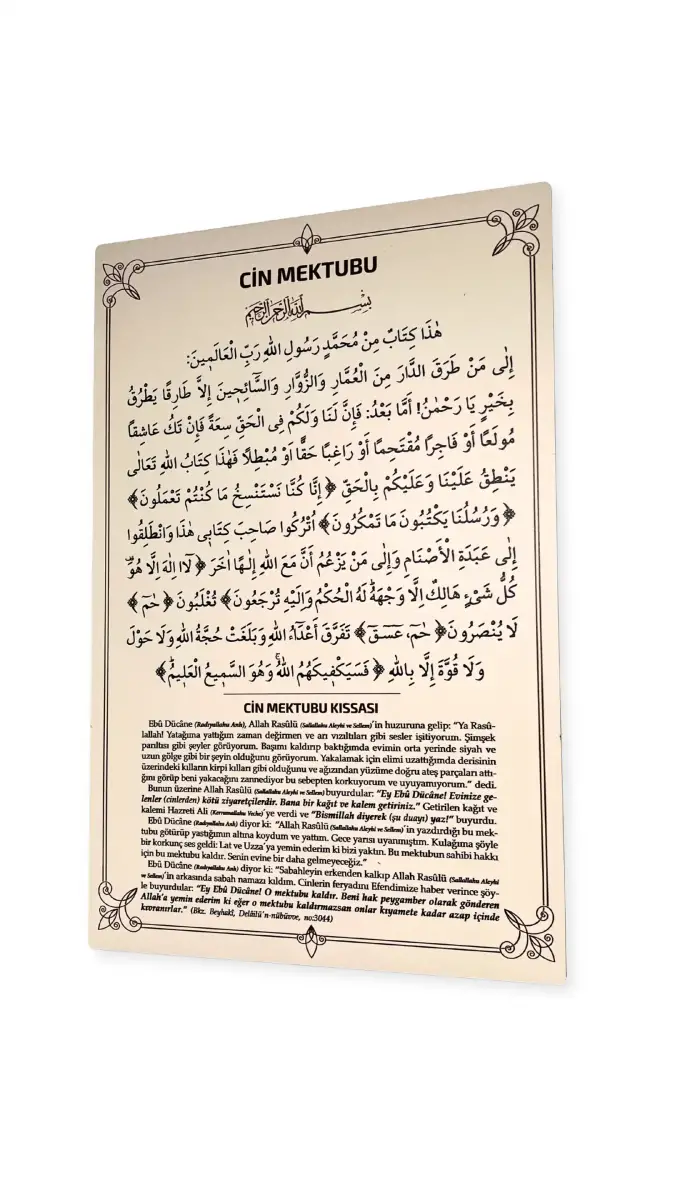 CİN MEKTUBU
بِسْمِ اللهِ الرَّحْمٰنِ الرَّحِيمِ
هٰذَا كِتَابٌ مِنْ مُحَمَّدٍ رَسُولِ اللهِ رَبِّ الْعَالَمِينَ:
إِلٰى مَنْ طَرَقَ الدَّارَ مِنَ الْعُمَّارِ وَالزُّوَّارِ وَالسَّائِحِينَ إِلَّا طَارِقًا يَطْرُقُ
بِخَيْرٍ يَا رَحْمٰنُ! أَمَّا بَعْدُ: فَإِنَّ لَنَا وَلَكُمْ فِى الْحَقِّ سِعَةً فَإِنْ تَكُ عَاشِقًا
مُولَعًا أَوْ فَاجِرًا مُقْتَحِمًا أَوْ رَاغِبًا حَقًّا اَوْ مُبْطِلًا فَهٰذَا كِتَابُ اللهِ تَعَالٰى
يَنْطِقُ عَلَيْنَا وَعَلَيْكُمْ بِالْحَقِّ ﴿إِنَّا كُنَّا نَسْتَنْسِخُ مَا كُنْتُمْ تَعْمَلُونَ﴾
﴿وَرُسُلُنَا يَكْتُبُونَ مَا تَمْكُرُونَ﴾ اُتْرُكُوا صَاحِبَ كِتَابِى هٰذَا وَانْطَلِقُوا
إِلٰى عَبَدَةِ الْأَصْنَامِ وَإِلٰى مَنْ يَزْعُمُ أَنَّ مَعَ اللهِ إِلٰهًا اٰخَرَ ﴿لَٓا اِلٰهَ اِلَّا هُوَ
كُلُّ شَىْءٍ هَالِكٌ اِلَّا وَجْهَهُ لَهُ الْحُكْمُ وَاِلَيْهِ تُرْجَعُونَ﴾ تُغْلَبُونَ ﴿حٰمٓ﴾
لَا يُنْصَرُونَ ﴿حٰمٓ، عٓسٓقٓ﴾ تَفَرَّقَ أَعْدَاءُ اللهِ وَبَلَغَتْ حُجَّةُ اللهِ وَلَا حَوْلَ
وَلَا قُوَّةَ إِلَّا بِاللهِ ﴿فَسَيَكْفِيكَهُمُ اللهُ وَهُوَ السَّمِيعُ الْعَلِيمُ﴾
CİN MEKTUBU KISSASI
Ebû Dücâne (Radıyallahu Anh), Allah Rasûlü (Sallallahu Aleyhi ve Sellem)'in huzuruna gelip: "Ya Rasû-
lallah! Yatağıma yattığım zaman değirmen ve arı vızıltıları gibi sesler işitiyorum. Şimşek
parıltısı gibi şeyler görüyorum. Başımı kaldırıp baktığımda evimin orta yerinde siyah ve
uzun gölge bir şeyin olduğunu görüyorum. Yakalamak için elimi uzattığımda derisinin
üzerindeki kılların kirpi kılları gibi olduğunu ve ağızından yüzüme doğru ateş parçaları attı-
ğını görüp beni yakacağını zannediyor bu sebepten korkuyorum ve uyuyamıyorum." dedi.
Bunun üzerine Allah Rasûlü (Sallallahu Aleyhi ve Sellem) buyurdular: "Ey Ebû Dücâne! Evinize ge-
lenler (cinlerden) kötü ziyaretçilerdir. Bana bir kağıt ve kalem getiriniz." Getirilen kağıt ve
kalemi Hazreti Ali (Kerremallahu Veche)'ye verdi ve "Bismillah diyerek (şu duayı) yaz!" buyurdu.
Ebû Dücâne (Radıyallahu Anh) diyor ki: "Allah Rasûlü (Sallallahu Aleyhi ve Sellem)'in yazdırdığı bu mek-
tubu götürüp yastığının altına koydum ve yattım. Gece yarısı uyanmıştım. Kulağıma şöyle
bir korkunç ses geldi: Lat ve Uzza'ya yemin ederim ki bizi yaktın. Bu mektubun sahibi hakkı
için bu mektubu kaldır. Senin evine bir daha gelmeyeceğiz."
Ebû Dücâne (Radıyallahu Anh) diyor ki: "Sabahleyin erkenden kalkıp Allah Rasûlü (Sallallahu Aleyhi
ve Sellem)'in arkasında sabah namazı kıldım. Cinlerin feryadını Efendimize haber verince şöy-
le buyurdular: "Ey Ebû Dücâne! O mektubu kaldır. Beni hak peygamber olarak gönderen
Allah'a yemin ederim ki eğer o mektubu kaldırmazsan onlar kıyamete kadar azap içinde
kıvranırlar." (Bkz. Beyhakî, Delâilü'n-nübüvve, no:3044)